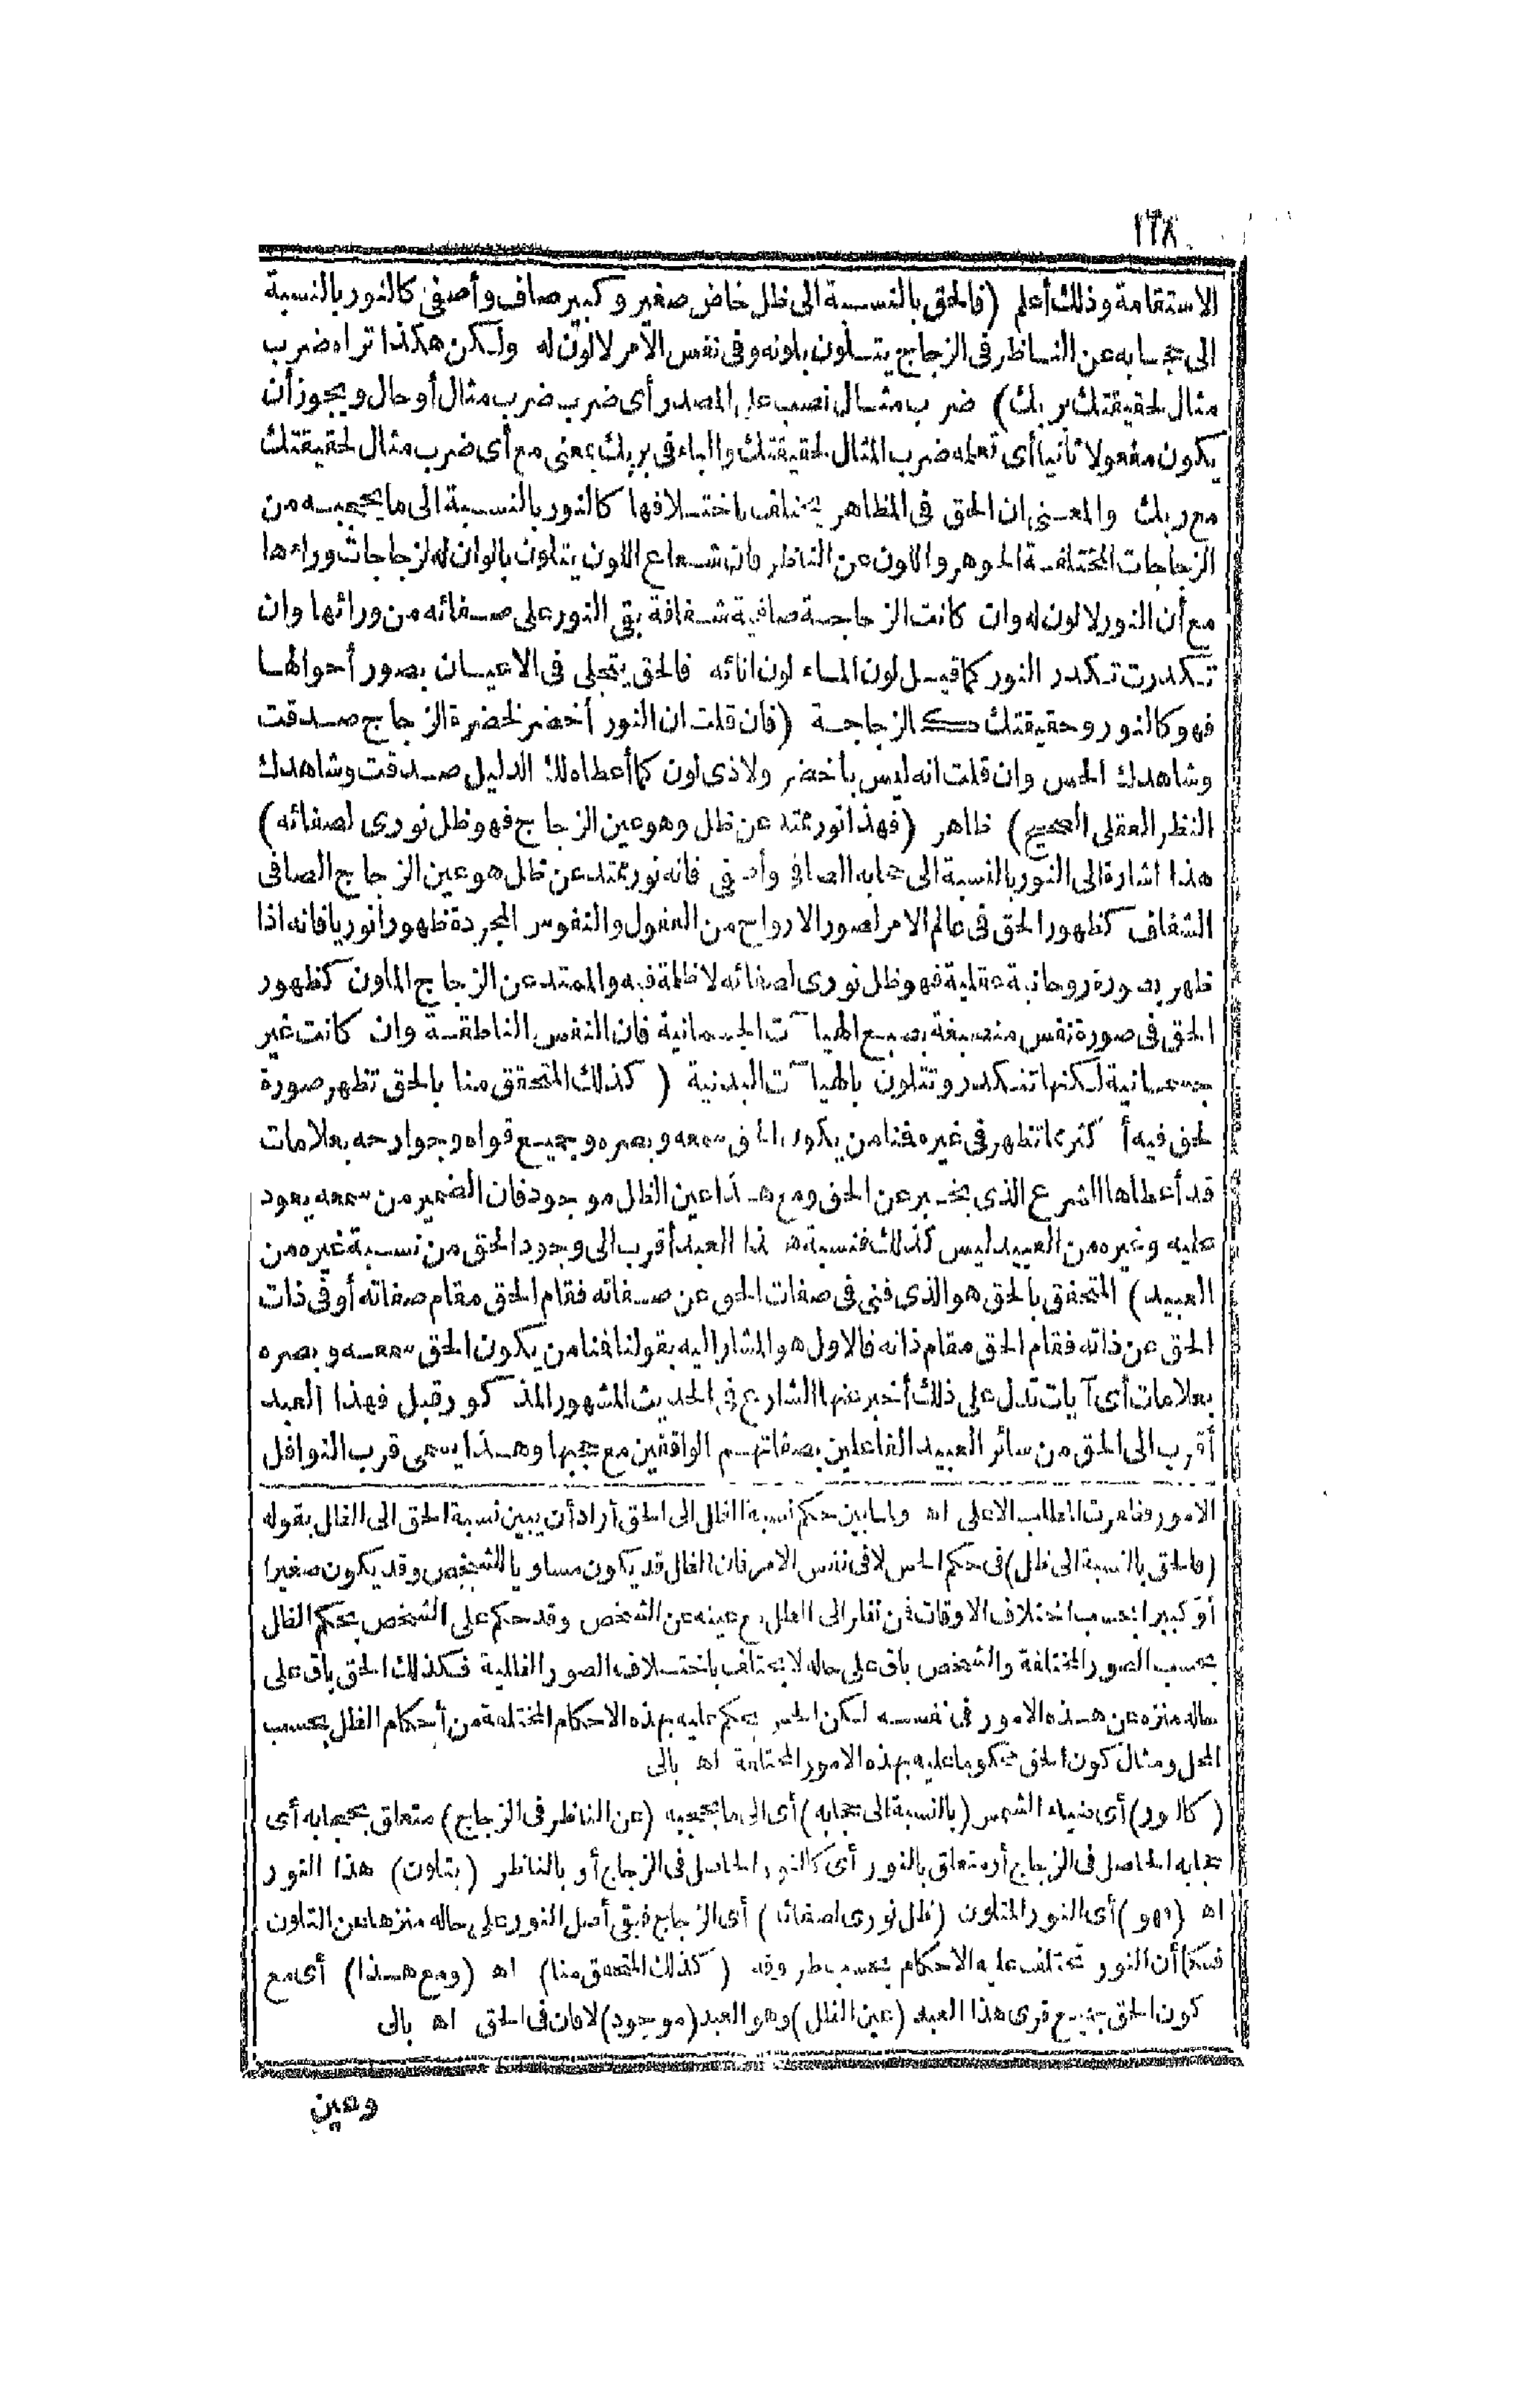 ١٢٨
الاستقامة وذلك أعلم (فالحق بالنسبة الى ظل خاص صغير وكبير صاف وأصفى كالنور بالنسبة
الى حجابه عن الناظر فى الزجاج يتلون بلونه وفى نفس الأمر لا لون له ولكن هكذا تراه ضرب
مثال لحقيقتك بربك) ضرب مثال نصب على المصدر أى ضرب ضرب مثال أو حال ويجوز أن
يكون مفعولا ثانيا أى تعلمه ضرب المثال لحقيقتك والباء فى بربك بمعنى مع أى ضرب مثال لحقيقتك
مع ربك والمعنى ان الحق فى المظاهر يختلف باختلافها كالنور بالنسبة الى ما يحجبه من
الزجاجات المختلفة الجوهر واللون عن الناظر فان شعاع اللون يتلون بالوان الزجاجات وراءها
مع أن النور لا لون له وان كانت الزجاجة صافية شفافة بقى النور على صفائه من ورائها وان
تكدرت تكدر النور كما قيل لون الماء لون انائه فالحق يتجلى فى الاعيان بصور أحوالها
فهو كالنور وحقيقتك كالزجاجة (فان قلت ان النور أخضر لخضرة الزجاج صدقت
وشاهدك الحس وان قلت انه ليس باخضر ولا ذى لون كما أعطاه لك الدليل صدقت وشاهدك
النظر العقلى الصحيح) ظاهر (فهذا نور ممتد عن ظل وهو عين الزجاج فهو ظل نورى لصفائه)
هذا اشارة الى النور بالنسبة الى حجابه الصافى وأصفى فانه نور ممتد عن ظل هو عين الزجاج الصافى
الشفاف كظهور الحق فى عالم الامر لصور الارواح من العقول والنفوس المجردة ظهورا نوريا فانه اذا
ظهر بصورة روحانية عقلية فهو ظل نورى لصفائه لا ظلمة فيه والممتد عن الزجاج الملون كظهور
الحق فى صورة نفس منصبغة بصبغ الهيآت الجسمانية فان النفس الناطقة وان كانت غير
جسمانية لكنها تتكدر وتتلون بالهيآت البدنية (كذلك المتحقق منا بالحق تظهر صورة
لحق فيه أكثر مما تظهر فى غيره فمنا من يكون الحق سمعه وبصره وجميع قواه وجوارحه بعلامات
قد أعطاها الشرع الذى يخبر عن الحق ومع هذا عين الظل موجود فان الضمير من سمعه يعود
عليه وغيره من العبيد ليس كذلك فنسبة هذا العبد أقرب الى وجود الحق من نسبة غيره من
العبيد) المتحقق بالحق هو الذى فنى فى صفات الحق عن صفاته فقام الحق مقام صفاته أو فى ذات
الحق عن ذاته فقام الحق مقام ذاته فالاول هو المشار اليه بقولنا فمنا من يكون الحق سمعه وبصره
بعلامات أى آيات تدل على ذلك أخبر عنها الشارع فى الحديث المشهور المذكور قبل فهذا العبد
أقرب الى الحق من سائر العبيد الفاعلين بصفاتهم الواقفين مع حجبها وهذا يسمى قرب النوافل
الامور وفاهرت المطلب الاعلى اه ولما بين حكم نسبة الظل الى الحق أراد أن يبين نسبة الحق الى الظل بقوله
(فالحق بالنسبة الى ظل) فى حكم الحس لا فى نفس الامر فان الظل قد يكون مساويا للشخص وقد يكون صغيرا
أو كبيرا بحسب اختلاف الاوقات فمن نظر الى الظل عينه عن الشخص وقد حكم على الشخص بحكم الظل
بحسب الصور المختلفة والشخص باق على حاله لا يختلف باختلاف الصور الظلية فكذلك الحق باق على
حاله منزه عن هذه الامور فى نفسه لكن الحس يحكم عليه بهذه الاحكام المختلفة من أحكام الظل بحسب
المحل ومثال كون الحق محكوما عليه بهذه الامور المختلفة اه بالى
(كالنور) أى ضياء الشمس (بالنسبة الى حجابه) أى الى ما يحجبه (عن الناظر فى الزجاج) متعلق بحجابه أى
حجابه الحاصل فى الزجاج أو متعلق بالنور أى كالنور الحاصل فى الزجاج أو بالناظر (يتلون) هذا النور
اه (فهو) أى النور المتلون (ظل نورى لصفائه) أى الزجاج فبقى أصل النور على حاله منزها عن التلون
فكما أن النور تختلف عليه الاحكام بحسب ظروفه (كذلك المتحقق منا) اه (ومع هذا) أى مع
كون الحق جميع قوى هذا العبد (عين الظل) وهو العبد (موجود) لا فان فى الحق اه بالى
وعين